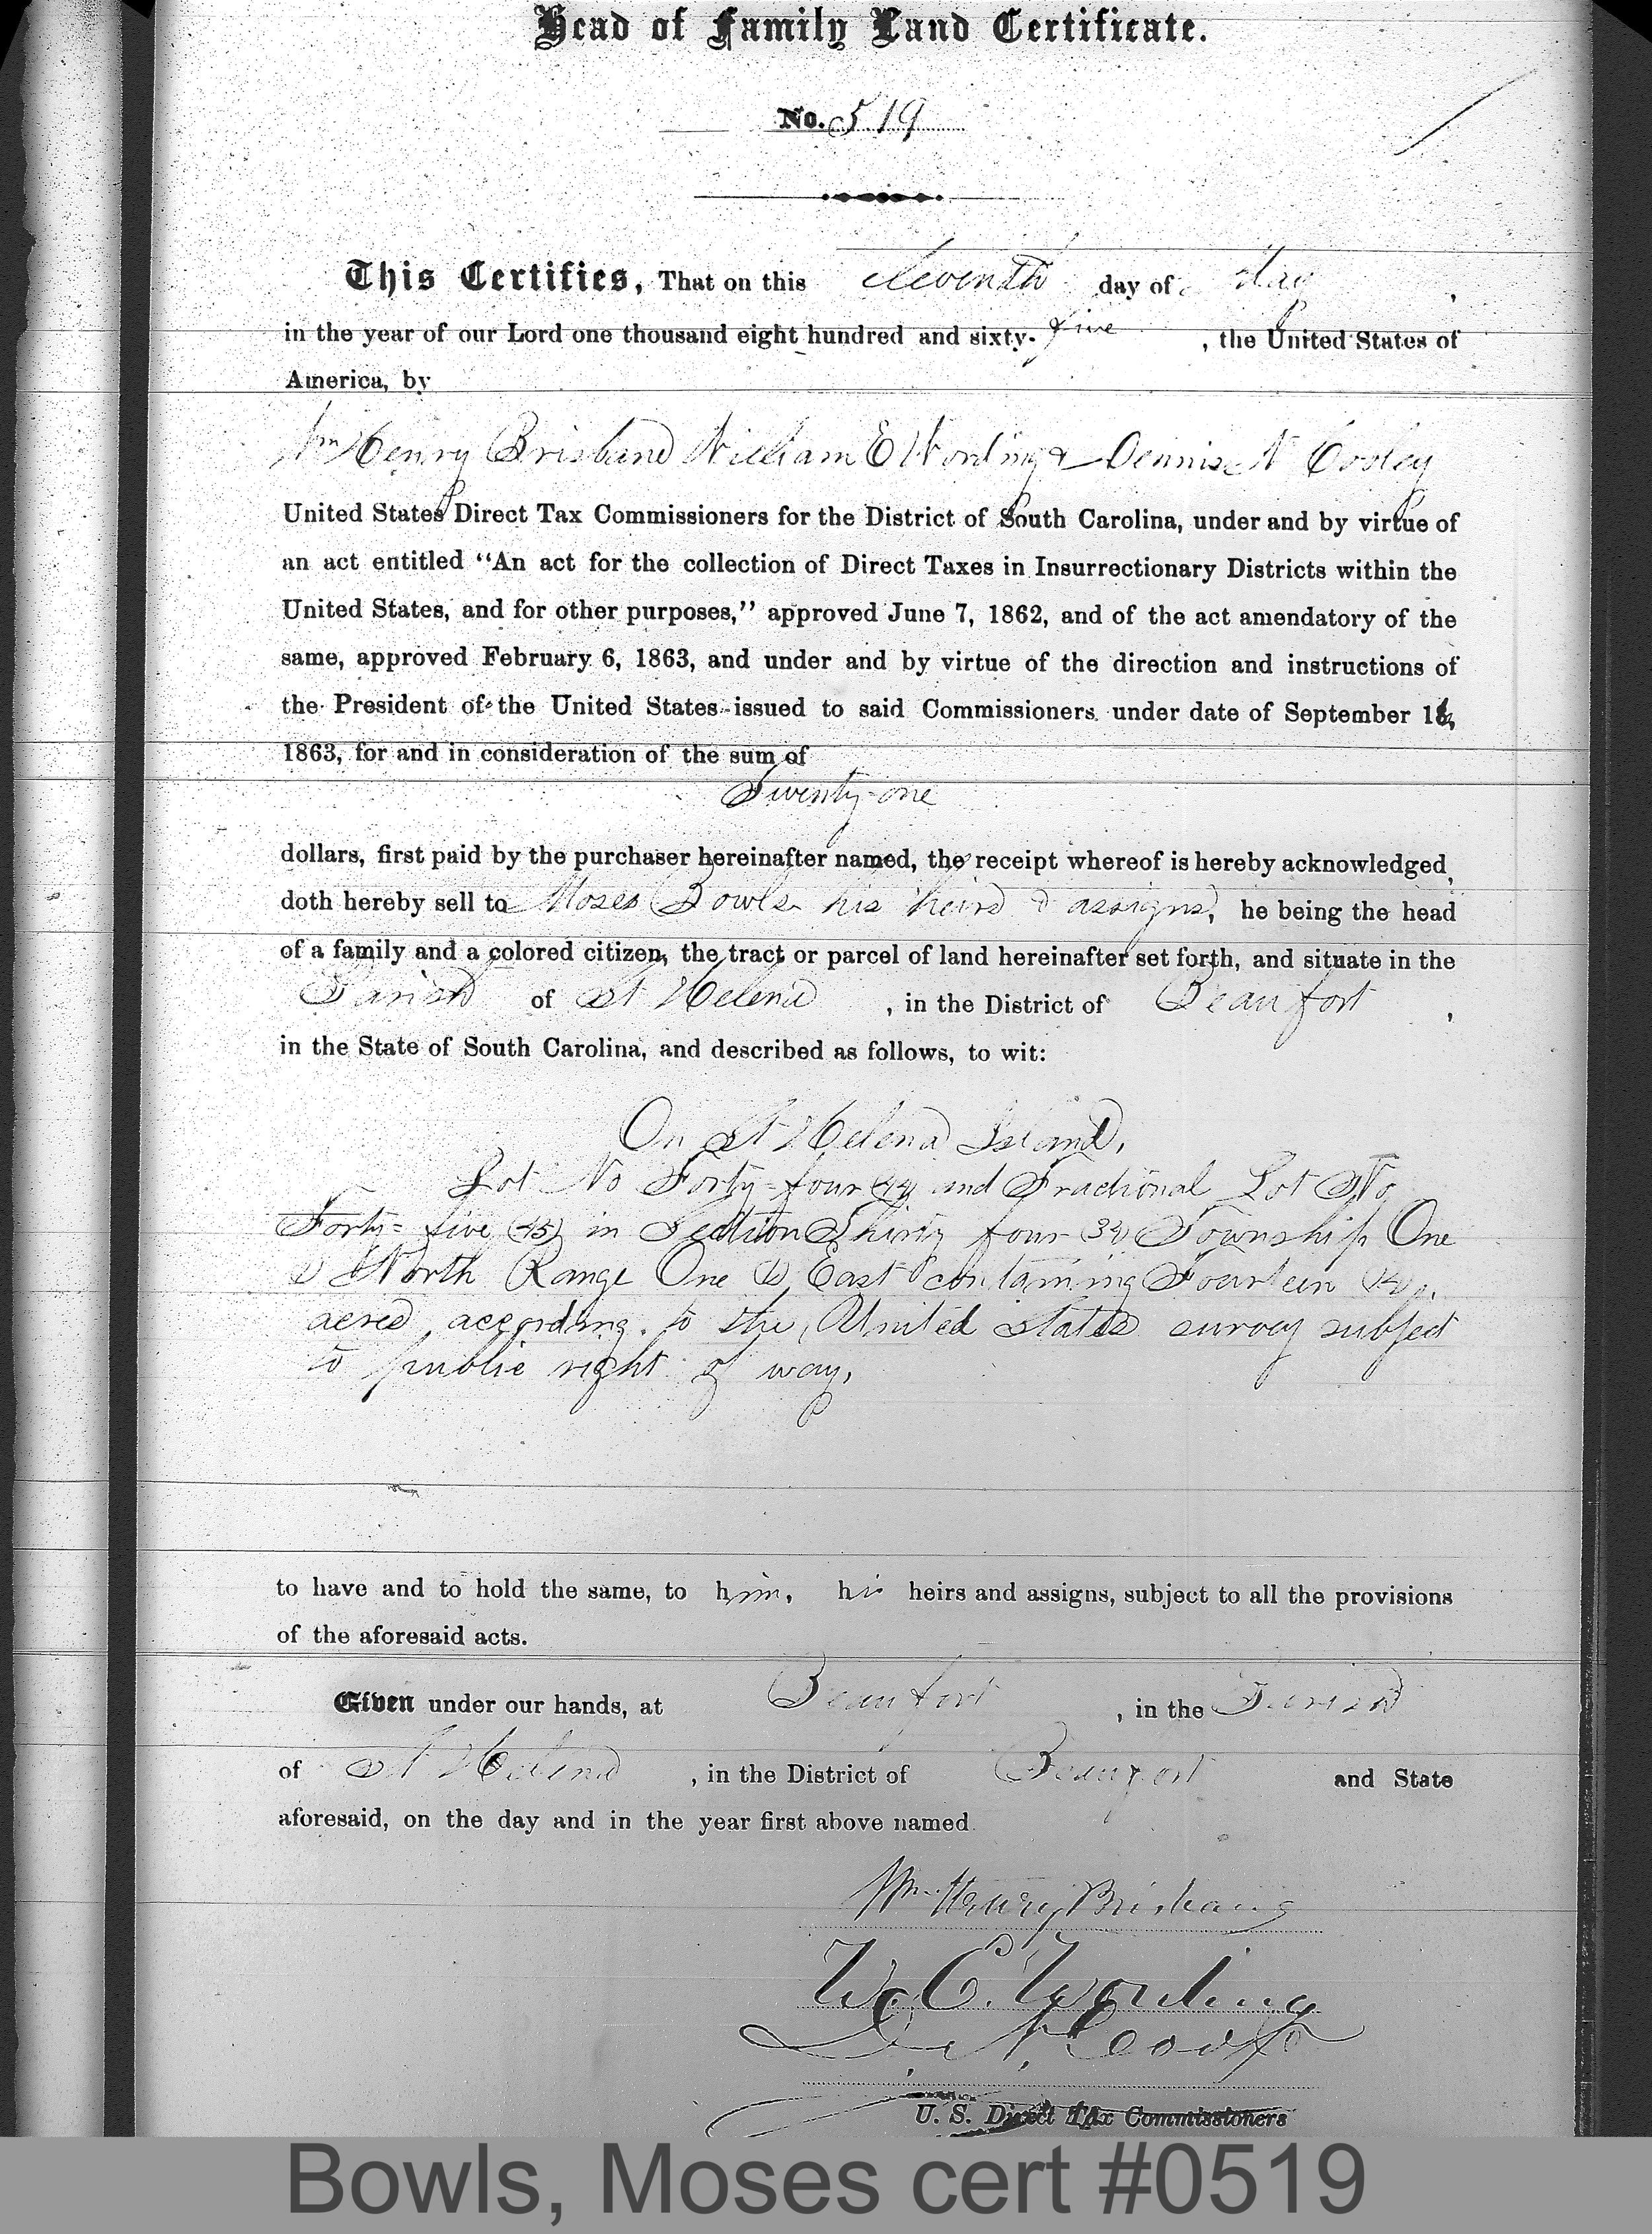 Head of Family Land Certificate.
No. 519
This Certifies, That on this eleventh day of May,
in the year of our Lord one thousand eight hundred and sixty-five, the United States of
America, by
Wm Henry Brisband William E Wording & Dennis N Cooley
United States Direct Tax Commissioners for the District of South Carolina, under and by virtue of
an act entitled "An act for the collection of Direct Taxes in Insurrectionary Districts within the
United States, and for other purposes," approved June 7, 1862, and of the act amendatory of the
same, approved February 6, 1863, and under and by virtue of the direction and instructions of
the President of the United States issued to said Commissioners under date of September 16,
1863, for and in consideration of the sum of
Twenty-one
dollars, first paid by the purchaser hereinafter named, the receipt whereof is hereby acknowledged,
doth hereby sell to Moses Bowls his heirs & assigns, he being the head
of a family and a colored citizen, the tract or parcel of land hereinafter set forth, and situate in the
Parish of St Helena, in the District of Beaufort,
in the State of South Carolina, and described as follows, to wit:
On St Helena Island,
Lot No Forty-four (44) and Fractional Lot No
Forty-five (45) in Section Thirty four (34) Township One
(1) North Range One (1) East containing Fourteen (14)
acres according to the United States survey subject
to public right of way,
to have and to hold the same, to him, his heirs and assigns, subject to all the provisions
of the aforesaid acts.
Given under our hands, at Beaufort, in the Parish
of St Helena, in the District of Beaufort and State
aforesaid, on the day and in the year first above named.
Wm. Henry Brisbane
W. E. Wording
D. N. Cooley
U. S. Direct Tax Commissioners
Bowls, Moses cert #0519